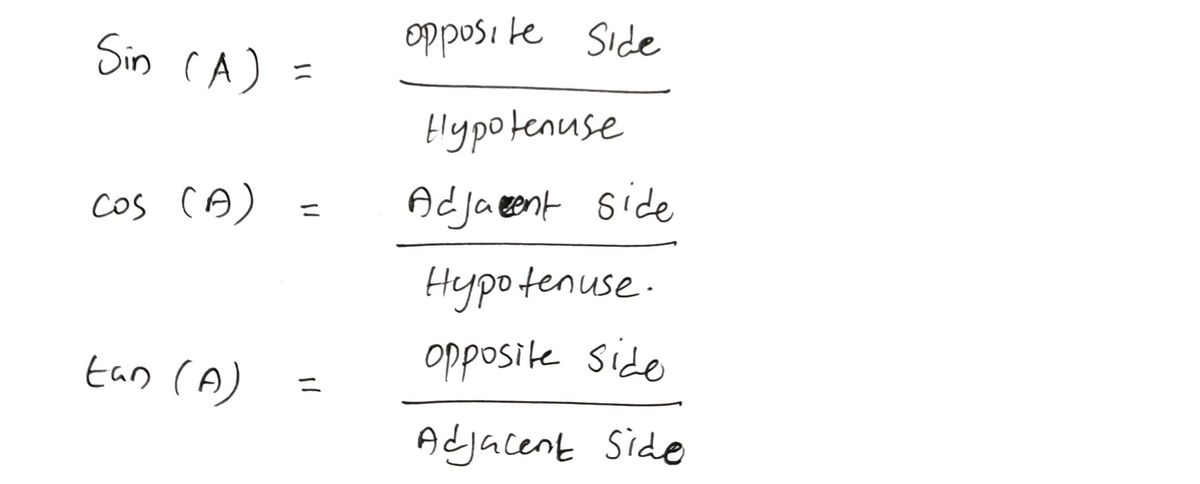 opposite Side
Sin (A) =
Hypotenuse
cos (A) = Adjacent side
Hypotenuse.
opposite side
tan (A) =
Adjacent side